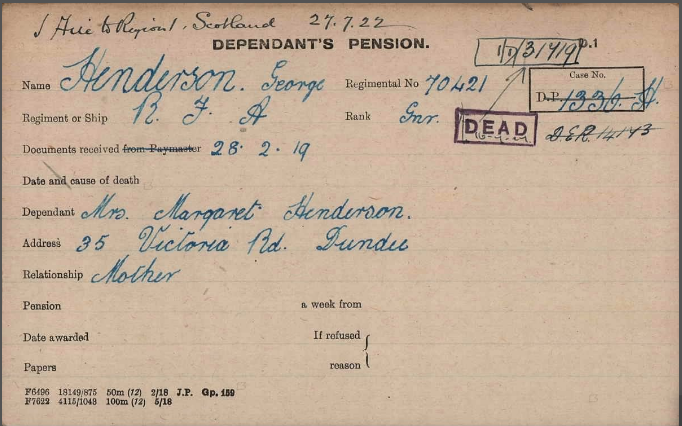 1 File to Region 1, Scotland 27.7.22
DEPENDANT'S PENSION.
1/D/31419 D.1
Name Henderson. George Regimental No 70421
Case No.
D.P. 1336. H.
Regiment or Ship R. F. A Rank Gnr. DEAD
Documents received from Paymaster 28. 2. 19
Date and cause of death
Dependant Mrs. Margaret Henderson.
Address 35 Victoria Rd. Dundee
Relationship Mother
Pension a week from
Date awarded If refused
Papers reason
F6496 18149/875 50m (12) 2/18 J.P. Gp. 159
F7622 4115/1048 100m (12) 5/18